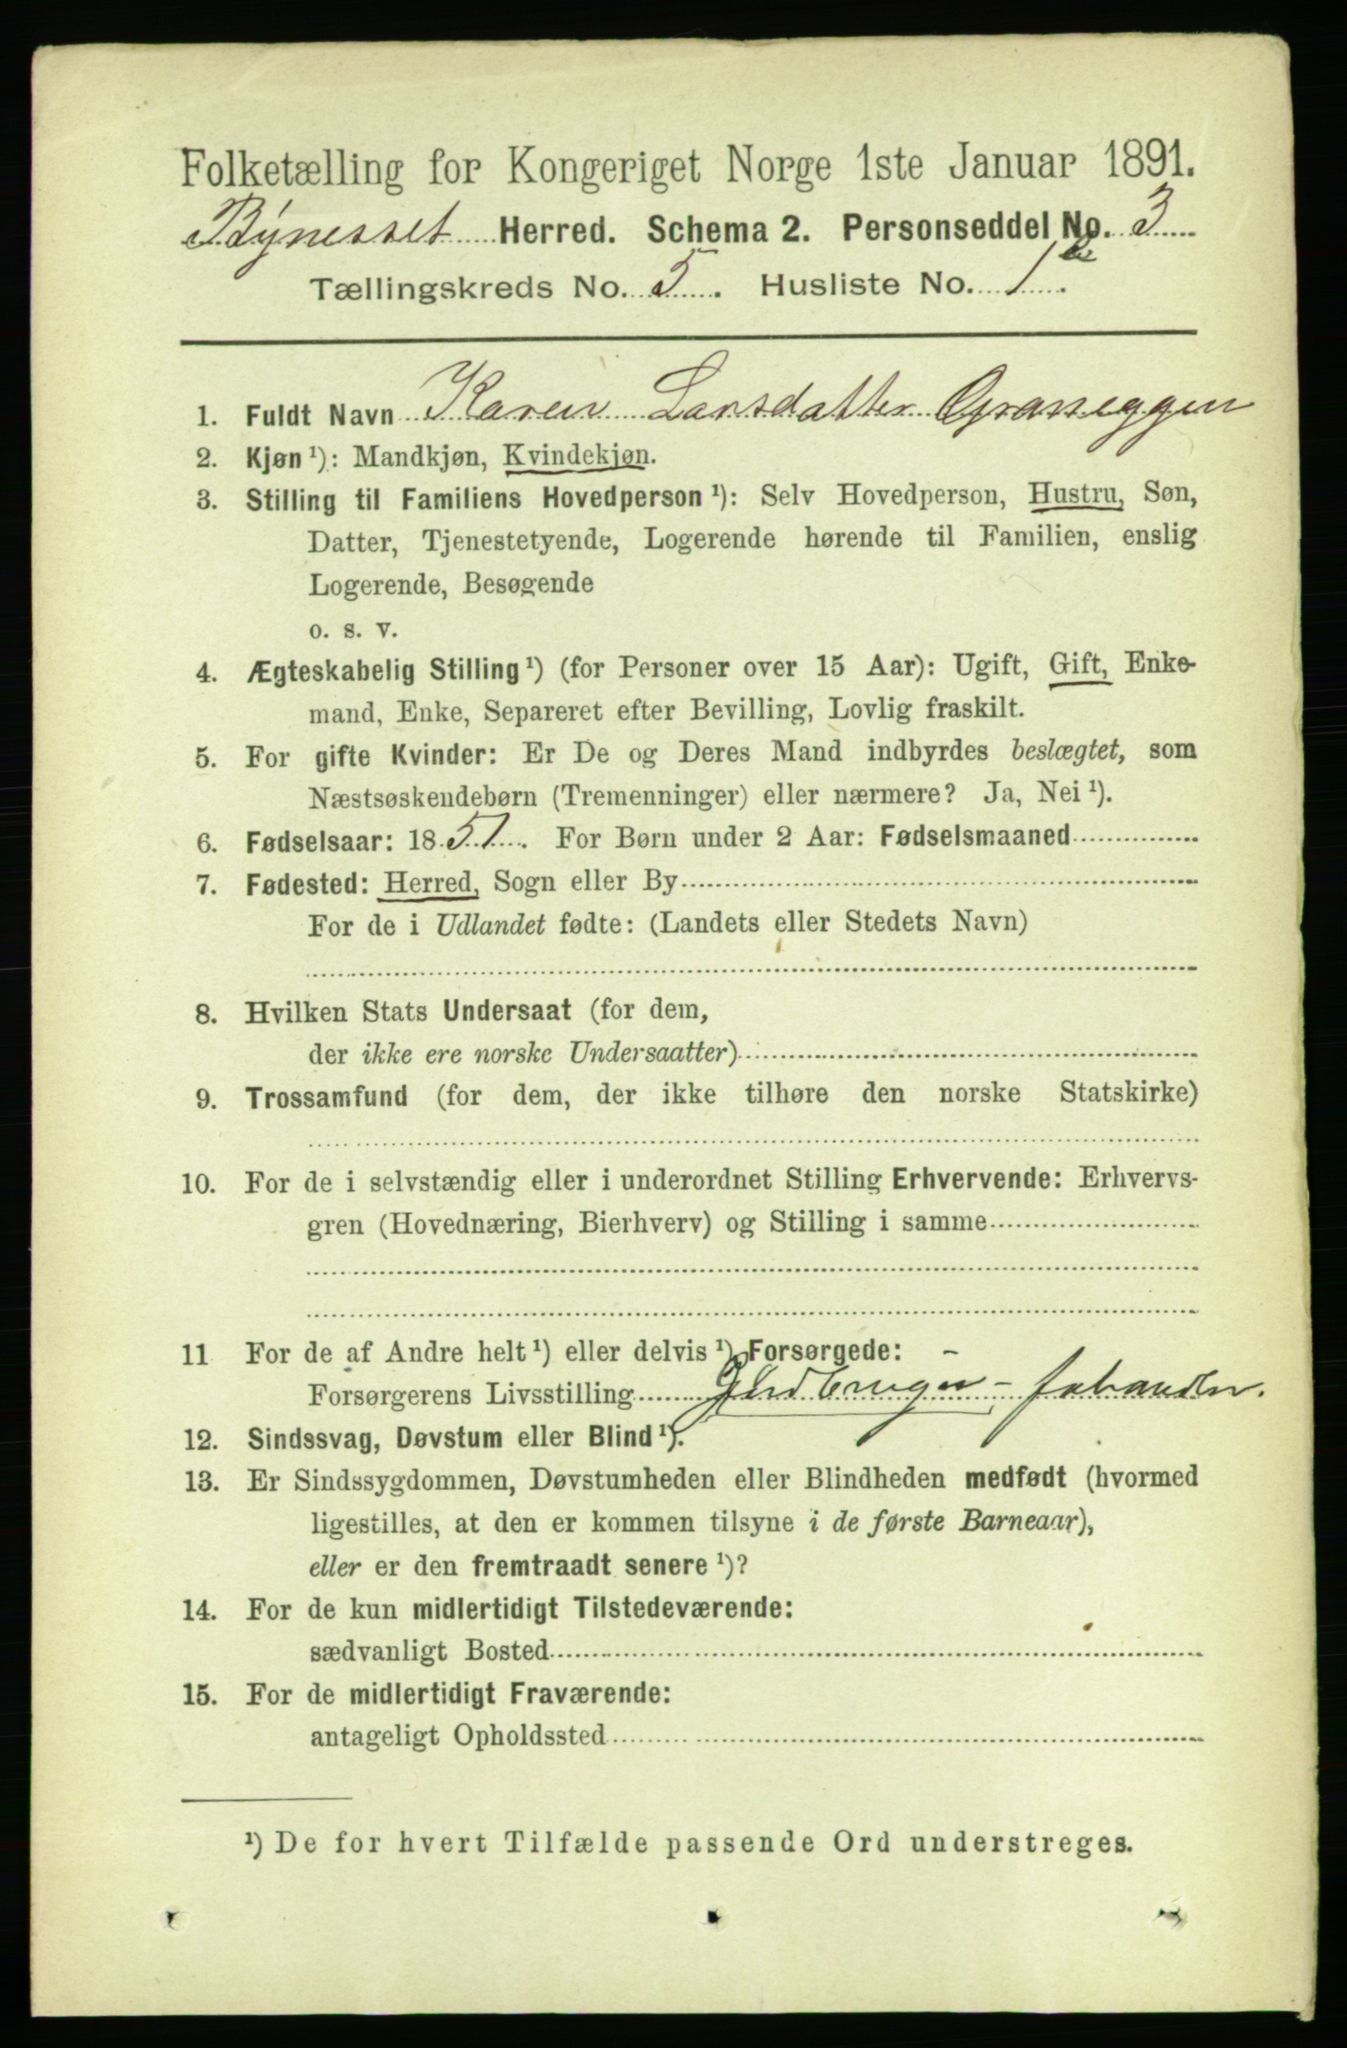 Folketælling for Kongeriget Norge 1ste Januar 1891.
Bynesset Herred. Schema 2. Personseddel No. 3
Tællingskreds No. 5. Husliste No. 1
1. Fuldt Navn Karen Larsdatter Graneggen
2. Kjøn¹): Mandkjøn, Kvindekjøn.
3. Stilling til Familiens Hovedperson¹): Selv Hovedperson, Hustru, Søn,
Datter, Tjenestetyende, Logerende hørende til Familien, enslig
Logerende, Besøgende
o. s. v.
4. Ægteskabelig Stilling¹) (for Personer over 15 Aar): Ugift, Gift, Enke-
mand, Enke, Separeret efter Bevilling, Lovlig fraskilt.
5. For gifte Kvinder: Er De og Deres Mand indbyrdes beslægtet, som
Næstsøskendebørn (Tremenninger) eller nærmere? Ja, Nei¹).
6. Fødselsaar: 1851. For Børn under 2 Aar: Fødselsmaaned
7. Fødested: Herred, Sogn eller By
For de i Udlandet fødte: (Landets eller Stedets Navn)
8. Hvilken Stats Undersaat (for dem,
der ikke ere norske Undersaatter)
9. Trossamfund (for dem, der ikke tilhøre den norske Statskirke)
10. For de i selvstændig eller i underordnet Stilling Erhvervende: Erhvervs-
gren (Hovednæring, Bierhverv) og Stilling i samme
11 For de af Andre helt¹) eller delvis¹) Forsørgede:
Forsørgerens Livsstilling
12. Sindssvag, Døvstum eller Blind¹).
13. Er Sindssygdommen, Døvstumheden eller Blindheden medfødt (hvormed
ligestilles, at den er kommen tilsyne i de første Barneaar),
eller er den fremtraadt senere¹)?
14. For de kun midlertidigt Tilstedeværende:
sædvanligt Bosted
15. For de midlertidigt Fraværende:
antageligt Opholdssted
¹) De for hvert Tilfælde passende Ord understreges.